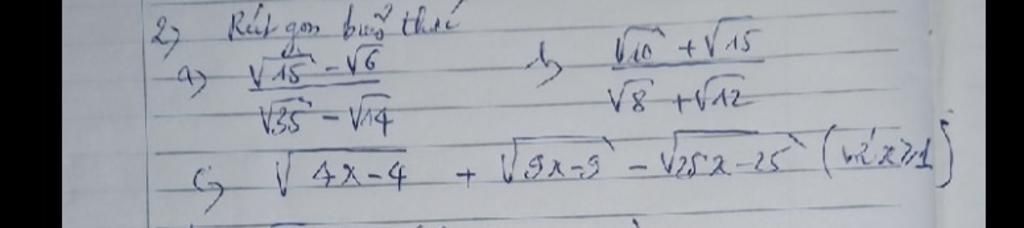 2) Rút gọn biểu thức
a) (√15 - √6)/(√35 - √14) b) (√10 + √15)/(√8 + √12)
c) √(4x-4) + √(9x-9) - √(25x-25) (với x≥1)